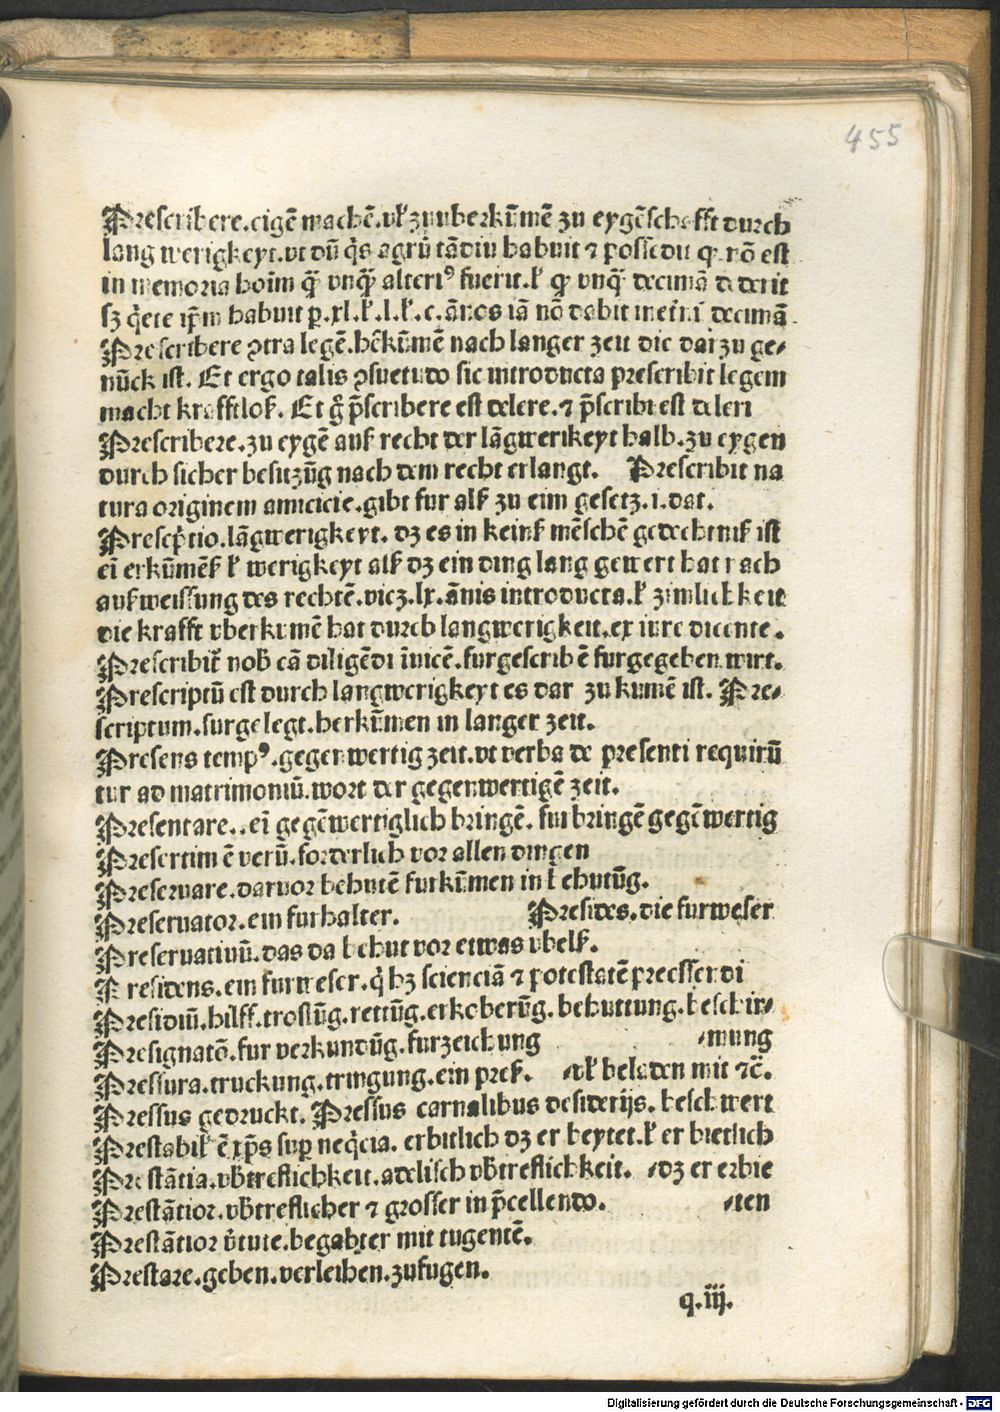 455
Prescribere.eigē machē.vł zuuberkūmē zu eygēschafft durch
lang werigkeyt.vt dū q̇s agrū tādiu habuit ⁊ possedit rō est
in memoria hoīm ꝙ̄ vnq̄ alteriꝰ fuerit.ł vnq̄ decimā dederit
sꝫ q̇ete ip̄m habuit ꝑ.xl.ł.l.ł.c.ānos iā nō dabit decimā
Prescribere ꝯtra legē.hēkūmē nach langer zeit die darzu ge⸗
nūck ist. Et ergo talis ꝯsuetudo sic introducta prescribit legem
macht krafftloß. Et ḡ p̄scribere est delere.⁊ p̄scribi est deleri
Prescribere.zu eygē auß recht der lāgwerikeyt halb.zu eygen
durch sicher besitzūg nach dem recht erlangt. Prescribit na
tura originem amicicie.gibt fur alß zu eim gesetz.i.dat.
Prescp̄tio.lāgwerigkeyt. dz es in keinß mēschē gedechtniß ist
eī erkūmēß ł werigkeyt alß dz ein ding lang gewert hat nach
außweissung des rechtē.vicz.lx.ānis introducta.ł zimlichkeit
die krafft vberkumē hat durch langwerigkeit.ex iure dicente.
Prescribit̄ nob̄ eā diligēdi īuicē.furgeschribē furgegeben wirt.
Prescriptū est durch langwerigkeyt es dar zu kumē ist. Pre⸗
scriptum.furgelegt.herkūmen in langer zeit.
Presens tempꝰ.gegenwertig zeit.vt verba de presenti requirū
tur ad matrimoniū.wort der gegenwertigē zeit.
Presentare..eī gegēwertiglich bringē. fur bringē gegēwertig
Presertim ē verū.forderlich vor allen dingen
Preseruare.daruor behutē furkūmen in behutūg.
Preseruator.ein furhalter. Presides.die furweser
Preseruatiuū.das da behut vor etwas vbelß.
Presidens.ein furweser.q̇ hꝫ scienciā ⁊ potestatē precesserdi
Presidiū.hilff.trostūg.rettūg.erkoberūg.behuttung.beschir⸗
Presignatō.fur verkundūg.furzeichung ⸗mung
Pressura.truckung.tringung.ein preß. ⸗vł beladen mit ⁊c̄.
Pressus gedruckt. Pressus carnalibus desiderijs.beschwert
Prestabił ē xp̄s suꝑ neq̇cia. erbitlich dz er beytet.ł er bietlich
Prestātia.vb̄treflichkeit.adelisch vb̄treflichkeit. ⸗dz er erbie
Prestātior.vb̄treflicher ⁊ grosser in p̄cellendo. ⸗ten
Prestātior v̄tute.begabter mit tugentē.
Prestare.geben.verleihen.zufugen.
q.iij.
Digitalisierung gefördert durch die Deutsche Forschungsgemeinschaft - DFG